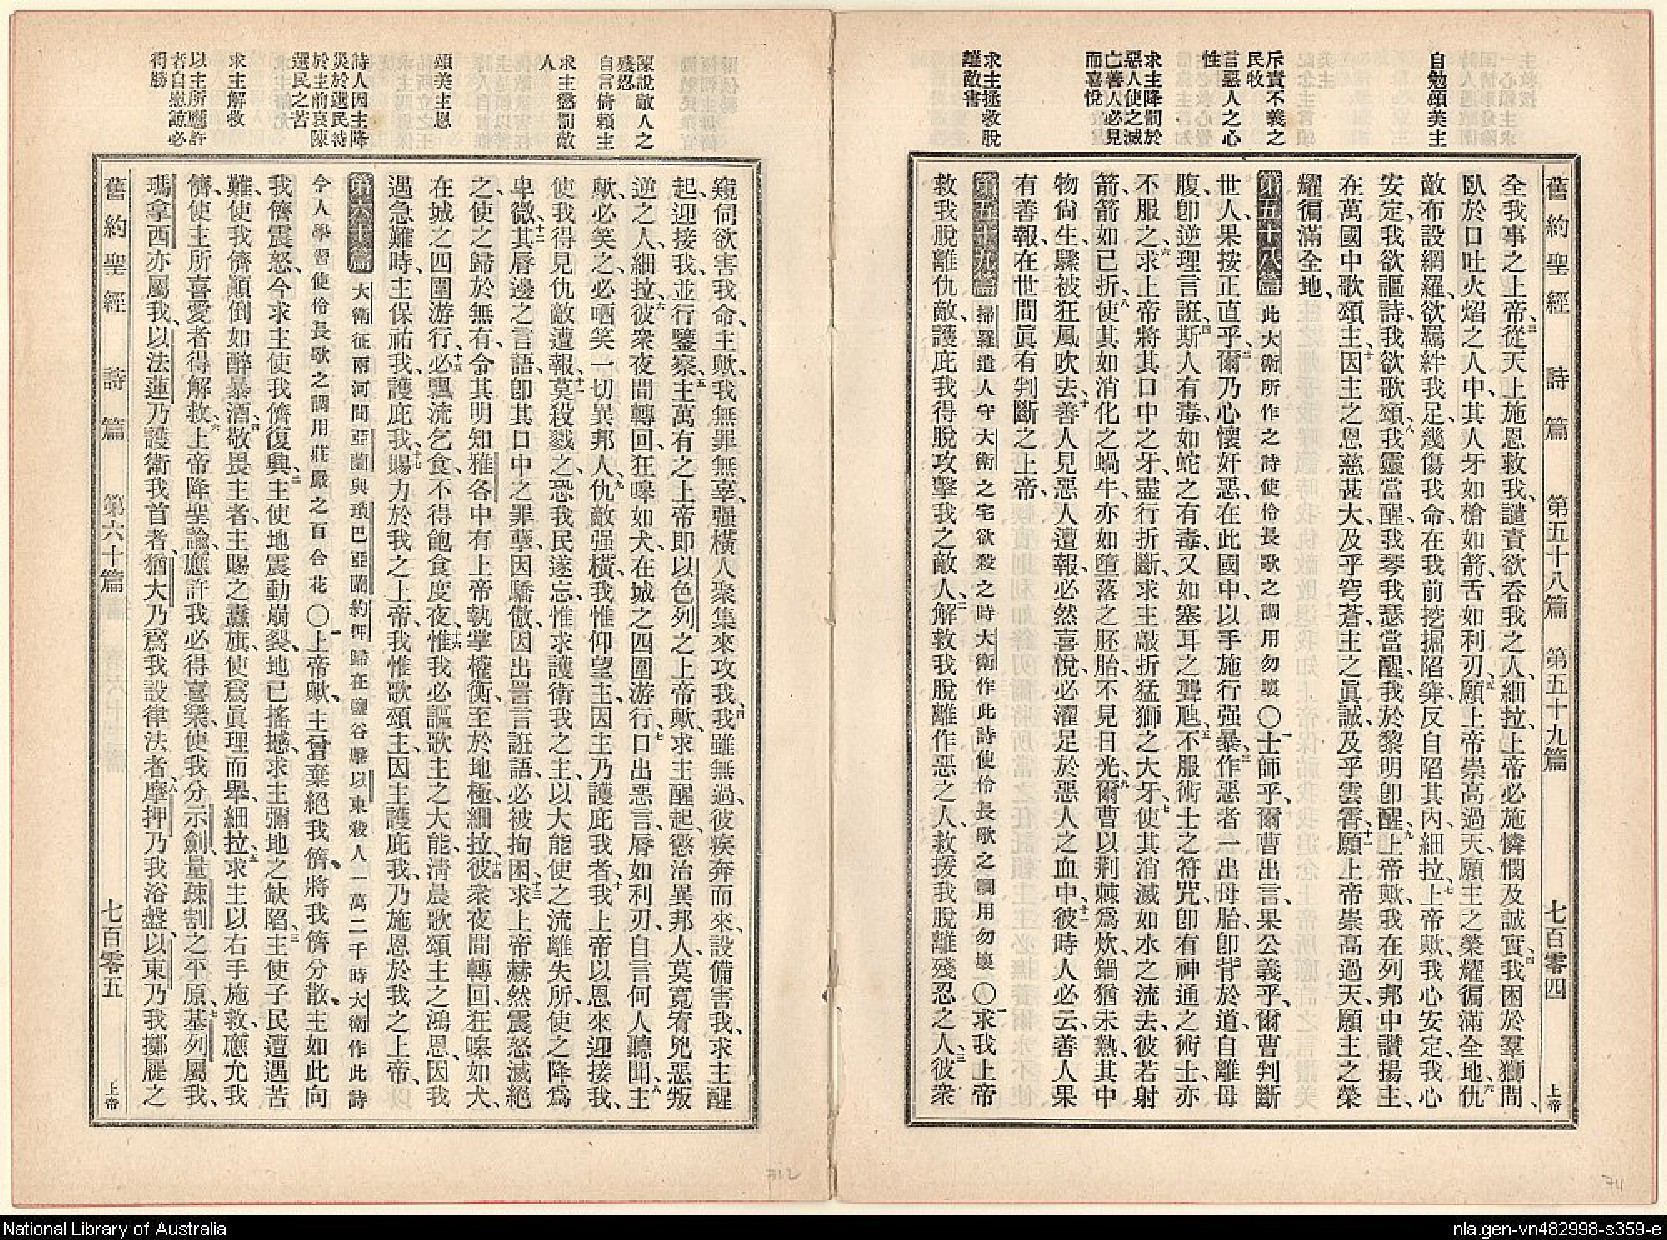 自勉頌美主
斥責不義之
民牧
言惡人之心
性
求主降罰於
惡人使之滅
亡善人必見
而喜悅
求主拯救脫
離敵害
舊約聖經 詩篇 第五十八篇 第五十九篇 七百零四 上帝
全我事之上帝、三從天上施恩救我、譴責欲吞我之人、細拉、上帝必施憐憫及誠實、四我困於羣獅間、
臥於口吐火焰之人中、其人牙如槍如箭、舌如利刃、五願上帝崇高過天、願主之榮耀徧滿全地、六仇
敵布設網羅、欲羈絆我足、幾傷我命、在我前挖掘陷穽、反自陷其內、細拉、七上帝歟、我心安定、我心
安定、我欲謳詩、我欲歌頌、八我靈當醒、我琴我瑟當醒、我於黎明卽醒、九上帝歟、我在列邦中讚揚主、
在萬國中歌頌主、十因主之恩慈甚大、及乎穹蒼、主之眞誠、及乎雲霄、十一願上帝崇高過天、願主之榮
耀徧滿全地、
第五十八篇 此大衛所作之詩使伶長歌之調用勿壞〇一士師乎、爾曹出言、果公義乎、爾曹判斷
世人、果按正直乎、二爾乃心懷奸惡、在此國中、以手施行强暴、三作惡者一出母胎、卽背於道、自離母
腹、卽逆理言誑、四斯人有毒、如蛇之有毒、又如塞耳之聾虺、五不服術士之符咒、卽有神通之術士、亦
不服之、六求上帝將其口中之牙、盡行折斷、求主敲折猛獅之大牙、七使其消滅如水之流去、彼若射
箭、箭如已折、八使其如消化之蝸牛、亦如墮落之胚胎、不見日光、九爾曹以荆棘爲炊、鍋猶未熟、其中
物尙生、驟被狂風吹去、十善人見惡人遭報、必然喜悅、必濯足於惡人之血中、十一彼時人必云、善人果
有善報、在世間眞有判斷之上帝、
第五十九篇 掃羅遣人守大衛之宅欲殺之時大衛作此詩使伶長歌之調用勿壞〇一求我上帝
救我脫離仇敵、護庇我得脫攻擊我之敵人、二解救我脫離作惡之人、救援我脫離殘忍之人、三彼衆
陳說敵人之
殘忍
自言倚賴主
求主懲罰敵
人
頌美主恩
詩人因主降
災於選民特
於主前哀陳
選民之苦
求主解救
以主所應許
者自慰諒必
得勝
窺伺欲害我命、主歟、我無罪無辜、强橫人聚集來攻我、四我雖無過、彼疾奔而來、設備害我、求主醒
起迎接我、並行鑒察、五主萬有之上帝、卽以色列之上帝歟、求主醒起懲治異邦人、莫寬宥兇惡叛
逆之人、細拉、六彼衆夜間轉回、狂嘷如犬、在城之四圍游行、七口出惡言、唇如利刃、自言何人聽聞、八主
歟、必笑之、必哂笑一切異邦人、九仇敵强橫、我惟仰望主、因主乃護庇我者、十我上帝以恩來迎接我、
使我得見仇敵遭報、十一莫殺戮之、恐我民遂忘、惟求護衛我之主、以大能使之流離失所、使之降爲
卑微、十二其唇邊之言語、卽其口中之罪孽、因驕傲、因出詈言誑語、必被拘困、十三求上帝赫然震怒滅絕
之、使之歸於無有、令其明知雅各中有上帝執掌權衡、至於地極、細拉、十四彼衆夜間轉回、狂嘷如犬、
在城之四圍游行、十五必飄流乞食、不得飽食度夜、十六惟我必謳歌主之大能、淸晨歌頌主之鴻恩、因我
遇急難時、主保祐我、護庇我、十七賜力於我之上帝、我惟歌頌主、因主護庇我、乃施恩於我之上帝、
第六十篇 大衛征兩河間亞蘭與瑣巴亞蘭約押歸在鹽谷擊以東殺人一萬二千時大衛作此詩
令人學習使伶長歌之調用莊嚴之百合花〇一上帝歟、主嘗棄絕我儕、將我儕分散、主如此向
我儕震怒、今求主使我儕復興、二主使地震動崩裂、地已搖撼、求主彌地之缺陷、三主使子民遭遇苦
難、使我儕顛倒如醉暴酒、四敬畏主者、主賜之纛旗、使爲眞理而舉、細拉、五求主以右手施救、應允我
儕、使主所喜愛者得解救、六上帝降聖諭、應許我必得喜樂、使我分示劍、量疎割之平原、七基列屬我、
瑪拿西亦屬我、以法蓮乃護衛我首者、猶大乃爲我設律法者、八摩押乃我浴盤、以東乃我擲屣之
舊約聖經 詩篇 第六十篇 七百零五 上帝
312
National Library of Australia
nla.gen-vn482998-s359-e